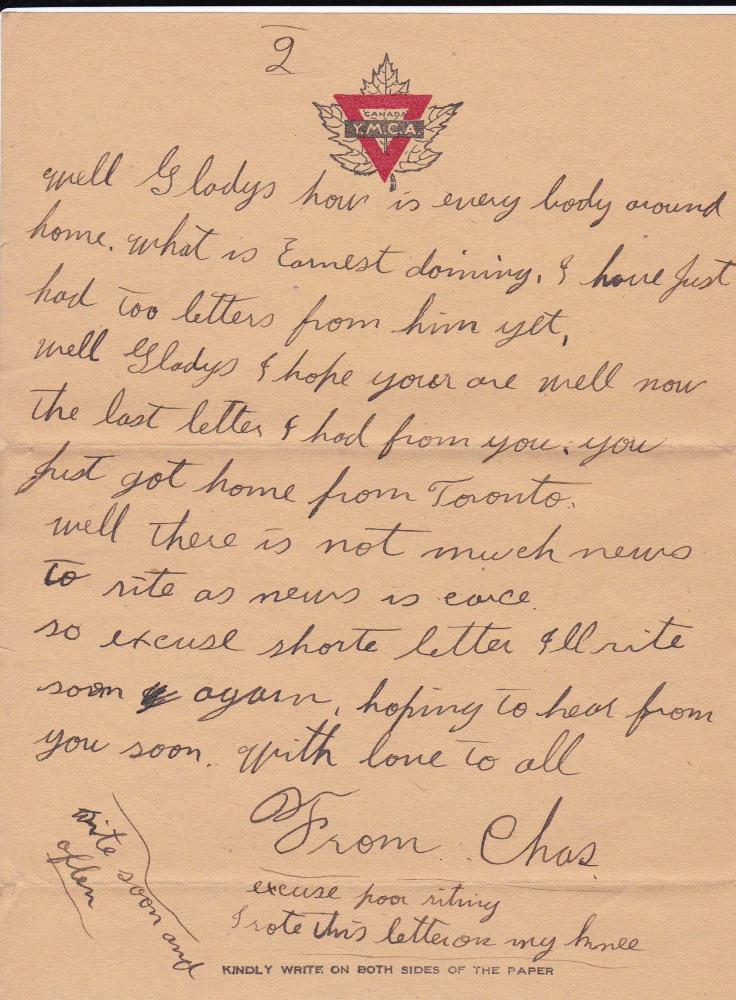 2
CANADA
Y.M.C.A.
well Gladys how is every body around
home. what is Earnest doining. I have Just
had too letters from him yet,
well Gladys I hope your are well now
the last letter I had from you. you
Just got home from Toronto.
well there is not much news
to rite as news is carce
so excuse shorte letter Ill rite
soon again, hoping to hear from
you soon. with love to all
From Chas.
excuse poor riting
I rote this letter on my knee
rite soon and
often
KINDLY WRITE ON BOTH SIDES OF THE PAPER